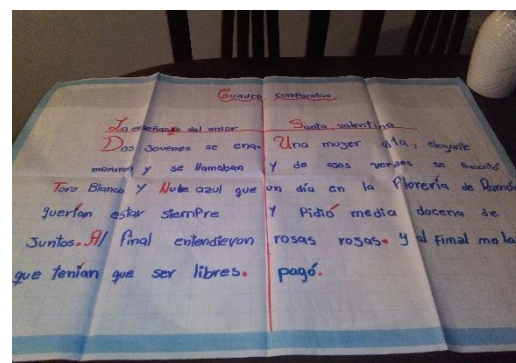 Cuadro comparativo
La enseñanza del amor
Dos Jovenes se ena-
moraron y se llamaban
Toro Blanco Y Nube azul que
querían estar siempre
Juntos. Al final entendieron
que tenían que ser libres.
Santa valentina
Una mujer alta, elegante
Y de ojos verdes se
un día en la Florería de Ramón
Y Pidió media docena de
rosas rosas. y al final no las
pagó.